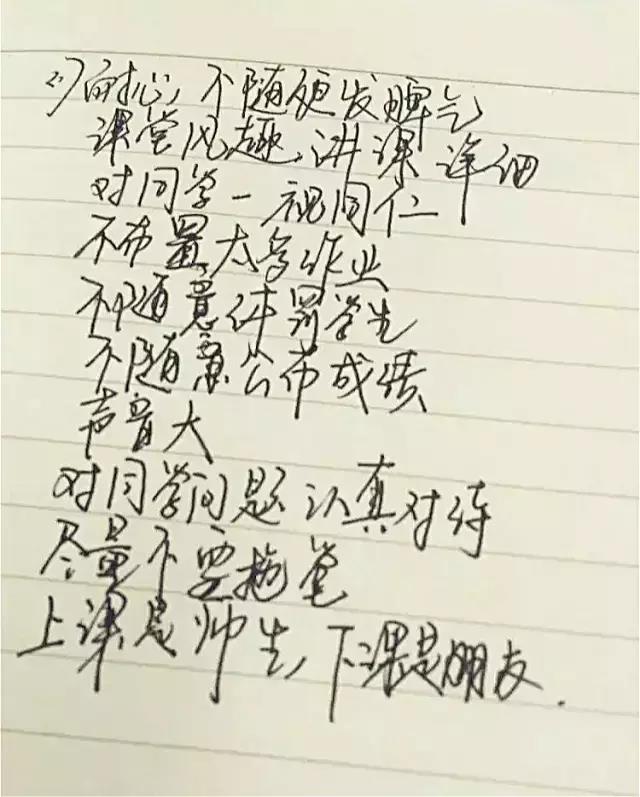 (2)耐心,不随便发脾气
课堂风趣,讲课详细
对同学一视同仁
不布置太多作业
不随意体罚学生
不随意公布成绩
声音大
对同学问题认真对待
尽量不要拖堂
上课是师生,下课是朋友.